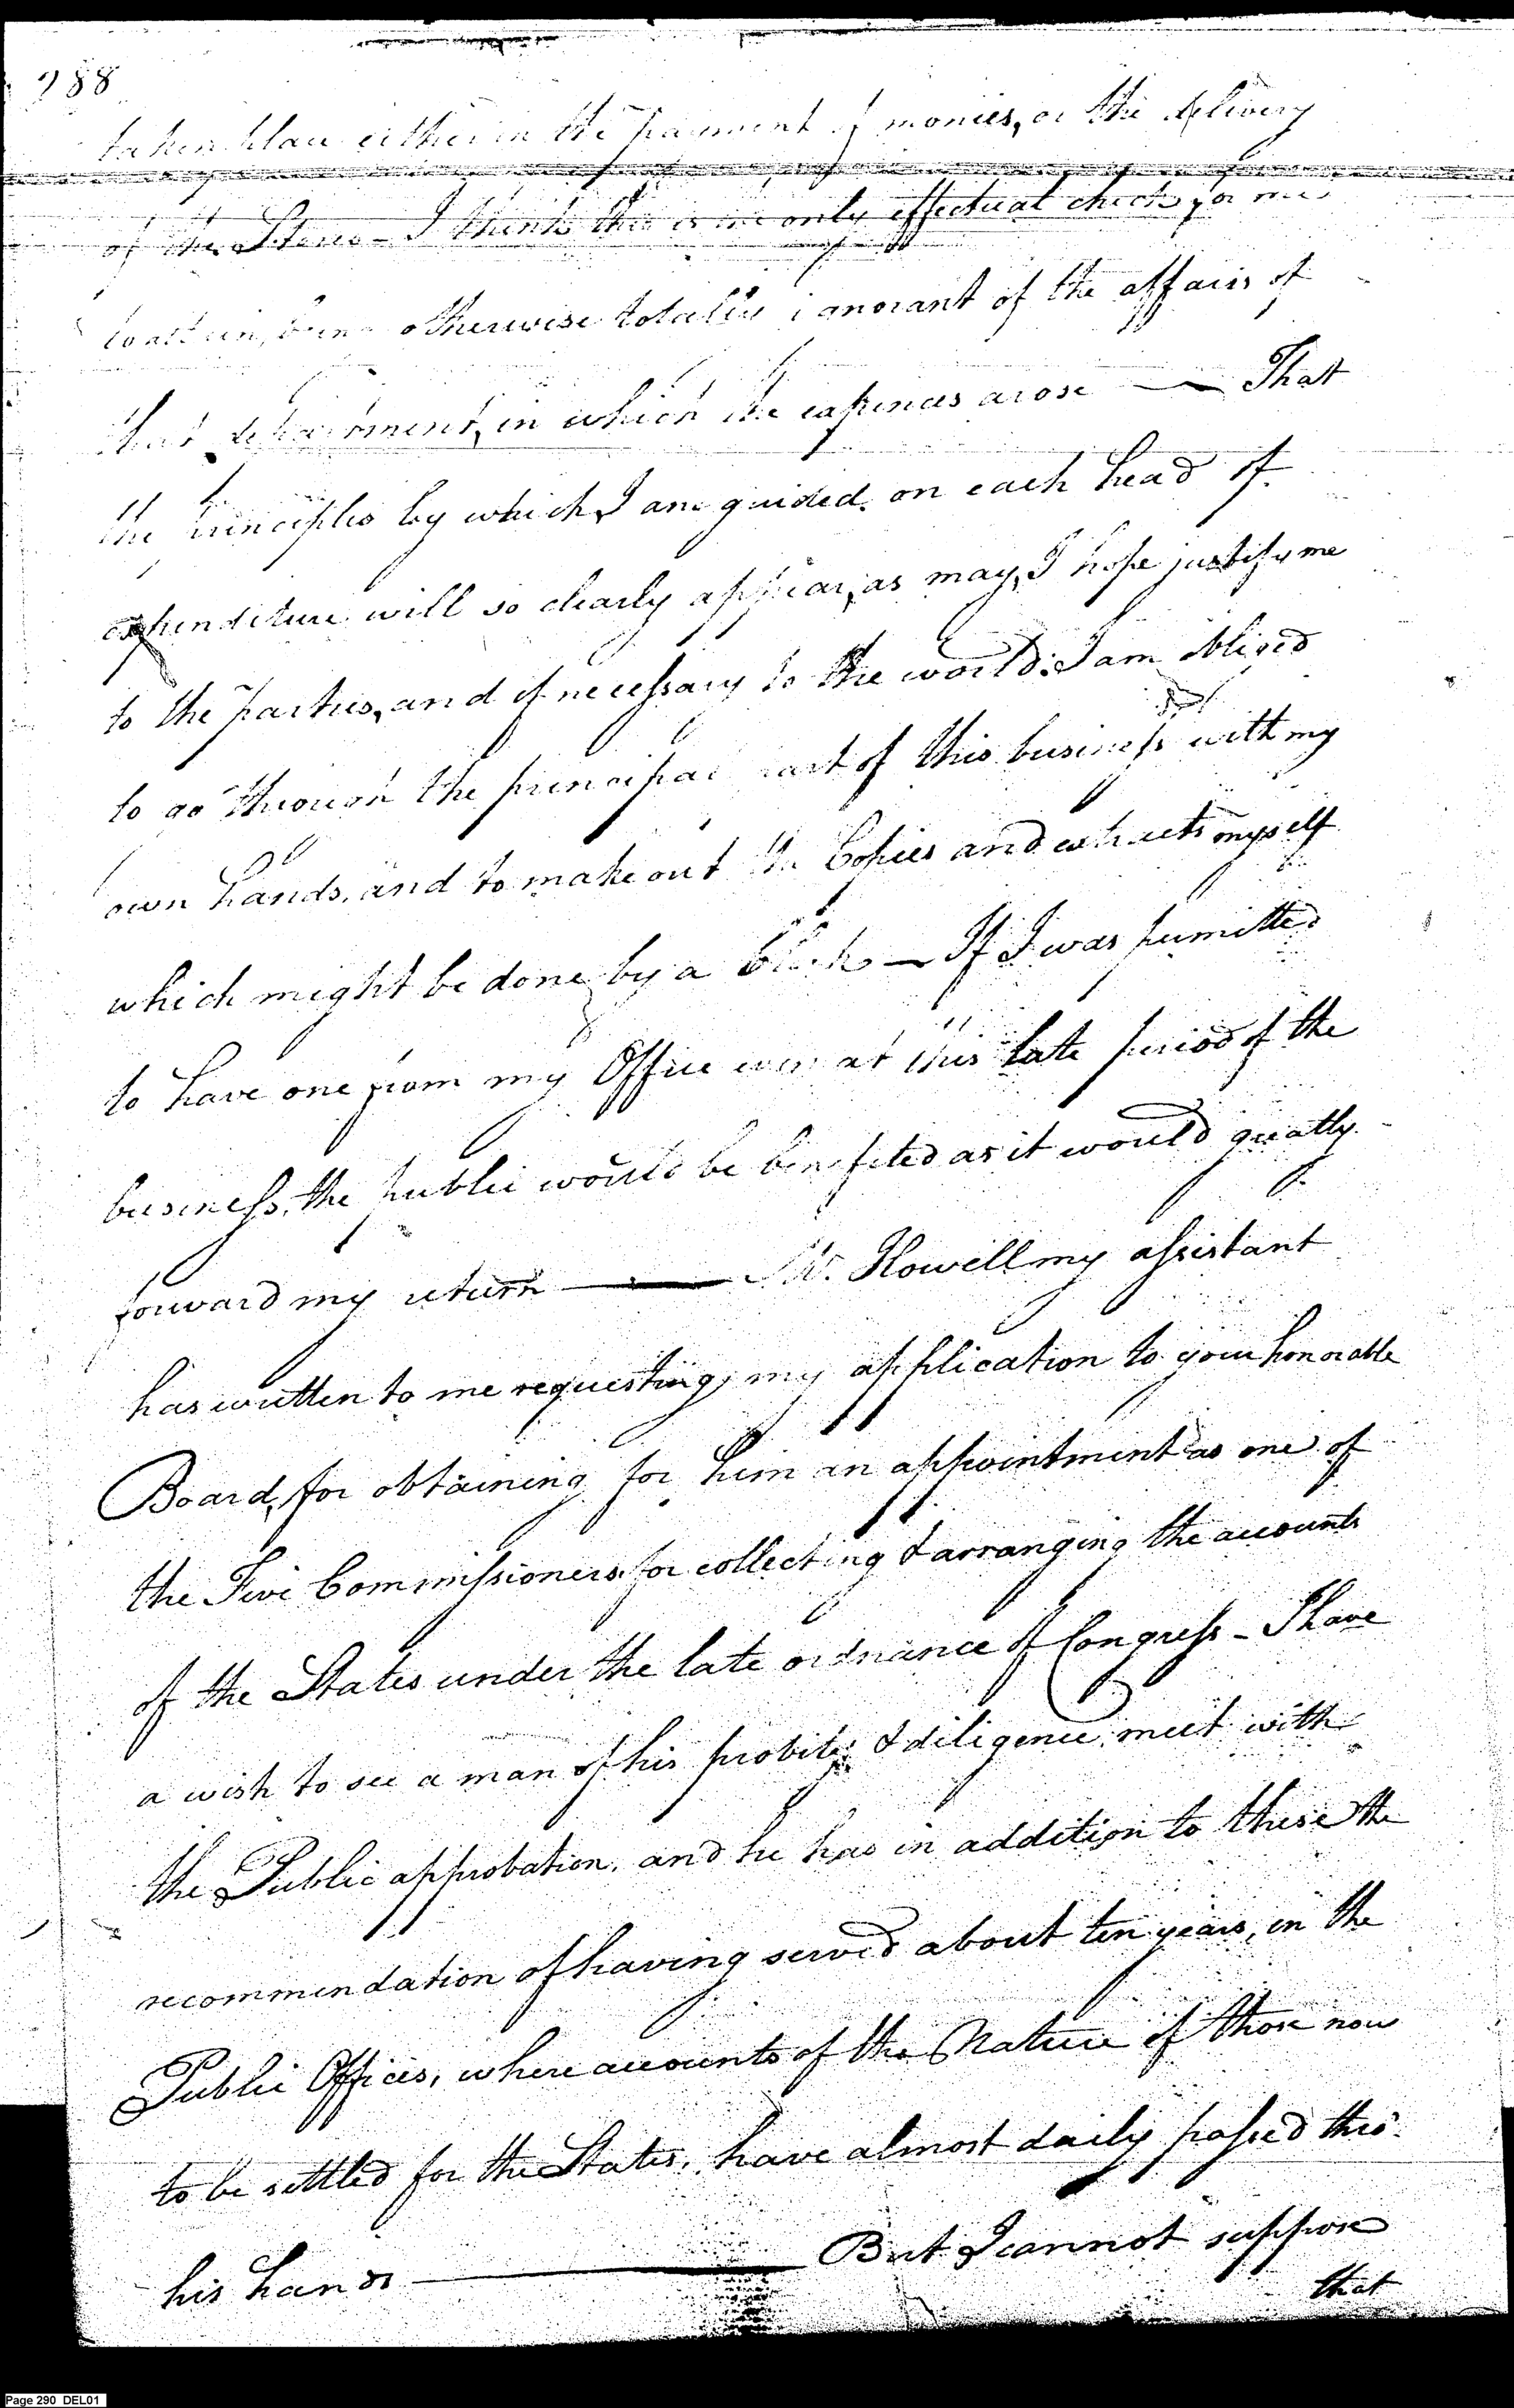 288
taken place either in the payment of monies, or the delivery
of the Stores - I think this is the only effectual check for me
to attain, being otherwise totally ignorant of the affairs of
that department, in which the expences arose — That
the principles by which I am guided on each head of
expenditure will so clearly appear, as may, I hope justify me
to the parties, and if necessary to the world: I am obliged
to go through the principal part of this business with my
own hands, and to make out the Copies and extracts myself
which might be done by a Clerk — If I was permitted
to have one from my Office even at this late period of the
business, the public would be benefited as it would greatly
forward my return — Mr. Howell my assistant
has written to me requesting my application to your honorable
Board, for obtaining for him an appointment as one of
the Five Commissioners for collecting & arranging the accounts
of the States under the late ordnance of Congress - I have
a wish to see a man of his probity & diligence meet with
the Public approbation, and he has in addition to these the
recommendation of having served about ten years, in the
Public Offices, where accounts of the Nature of those now
to be settled for the States, have almost daily passed thro'
his hands — But I cannot suppose
that
Page 290 DEL01